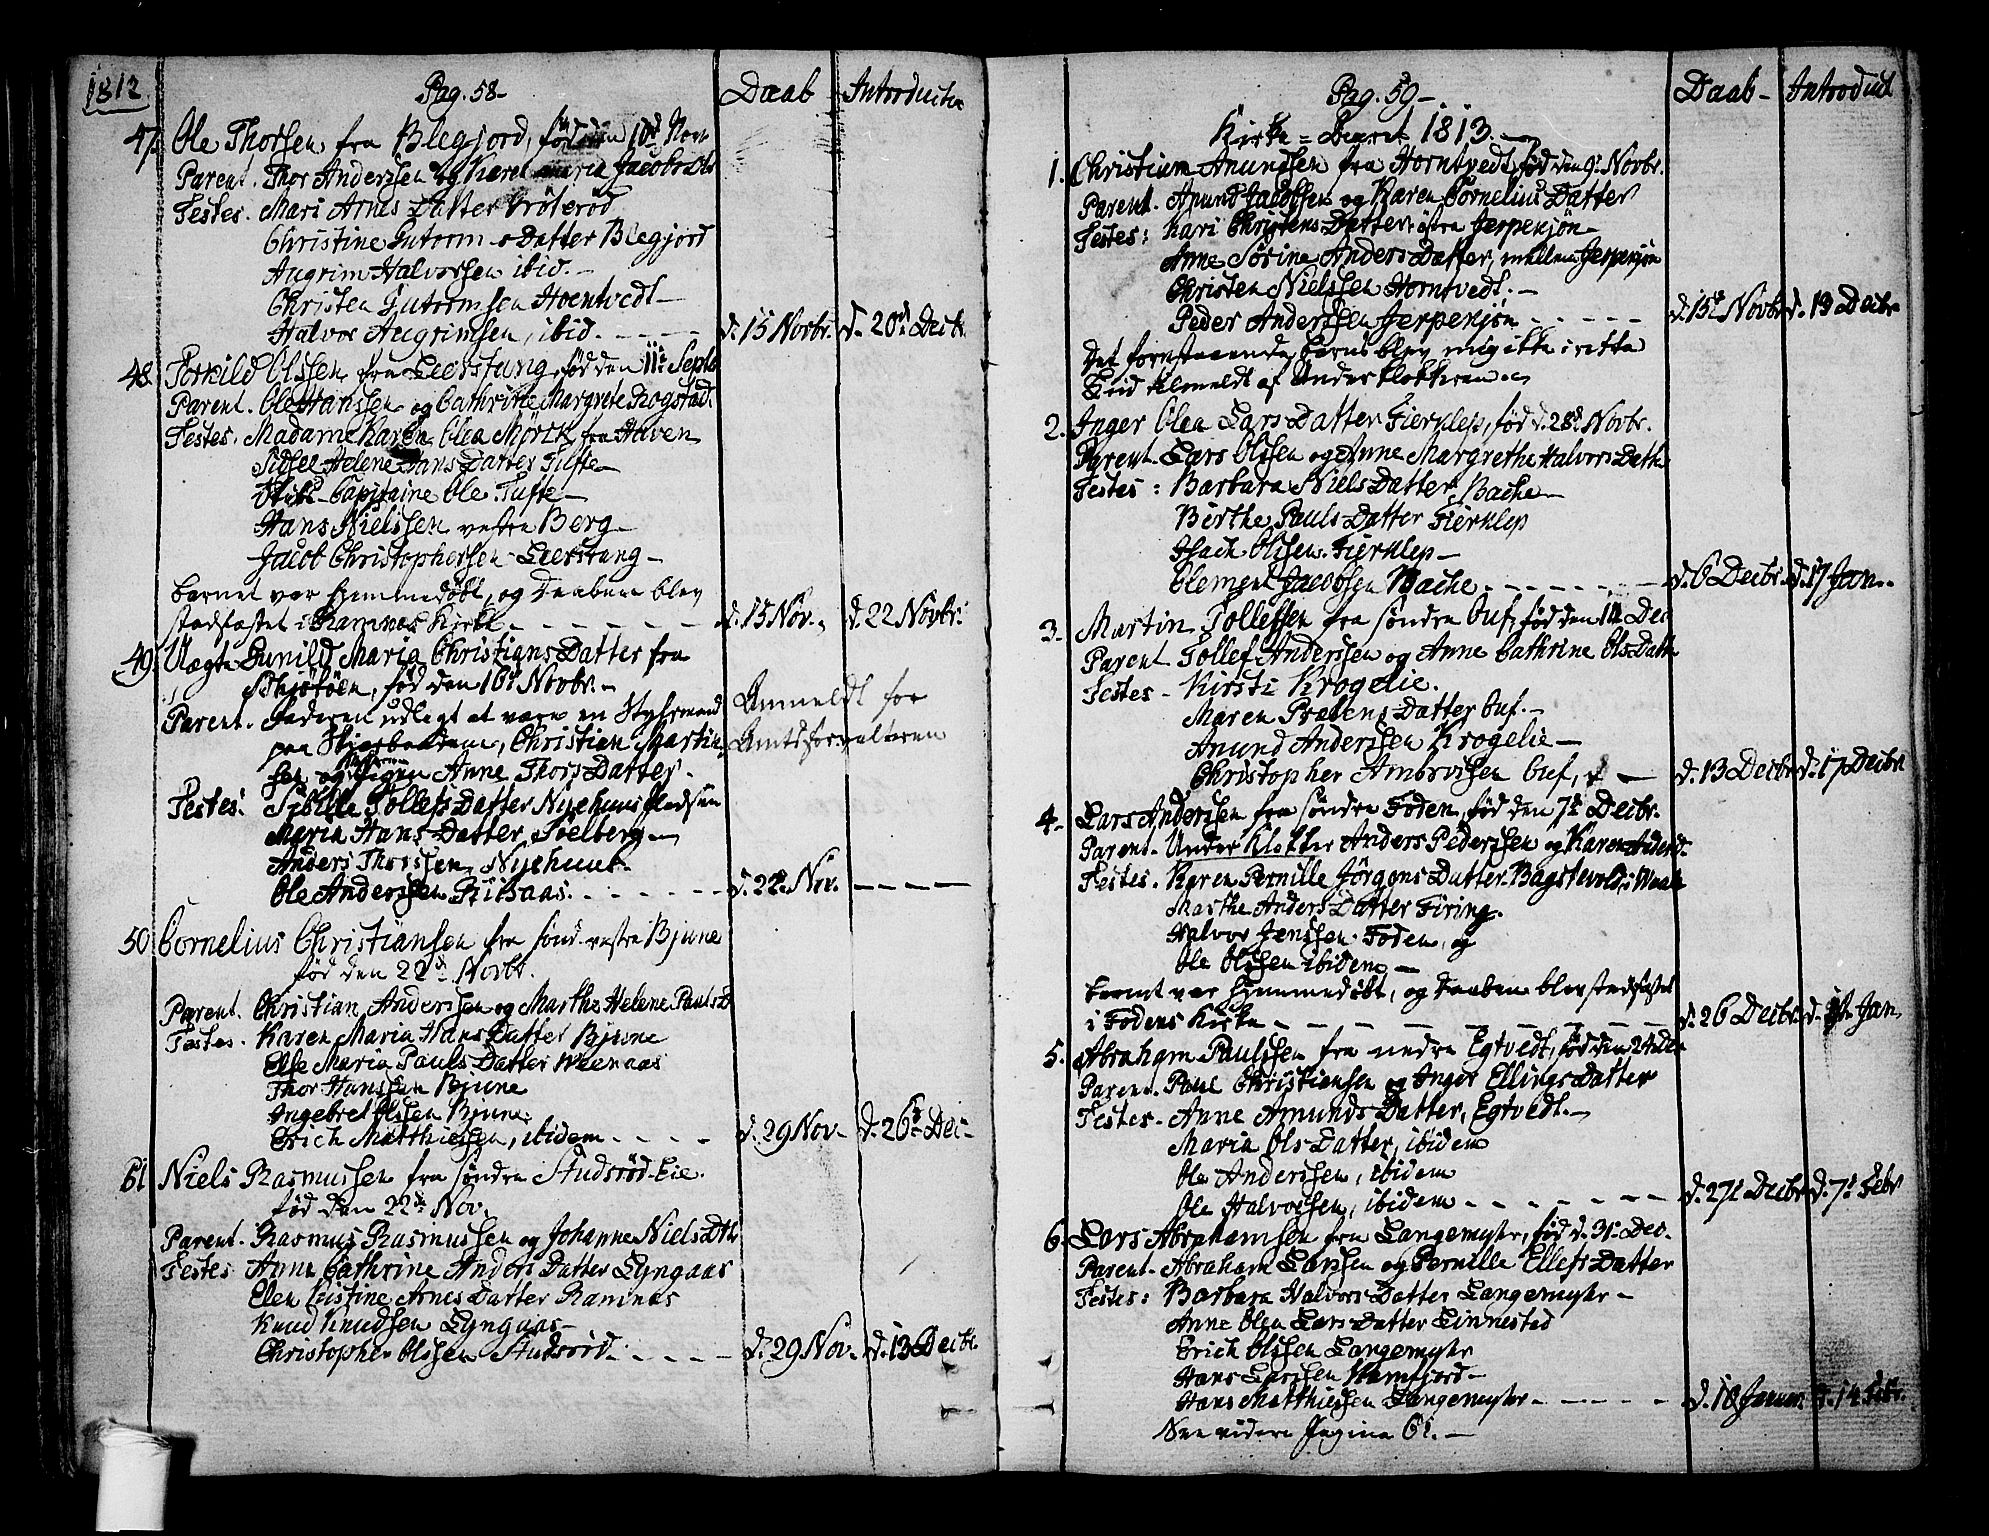 1812.
Pag. 58-
Daab
Introductio
47. Ole Thorsen fra Blegjord, født den 10d Nov.
Parent. Thor Anderssen og Karet Maria Jacobs D.
Testes. Mari Arnes Datter Trölsröd
Christine Gutorms Datter Blegjord
Augrim Halvorssen ibid.-
Christen Gutormsen Hoentvedt-
Halvor Augrimsen, ibid. - - - - d. 15 Novbr. d. 20de Decbr.
48. Torkild Olssen fra Leerstang, født den 11te Septb.
Parent. Ole Hanssen og Cathrine Margrete Rogstad.
Testes. Madame Karen Olea Morck fra Haven
Sidsel Helene Hans Datter Tufte-
Skibs-Capitaine Ole Tufte-
Hans Nielssen vestre Berg-
Jacob Christophersen Leerstang-
barnet var hjemmedöbt, og Daaben blev
stadfæstet i Ramnes Kirke - - - - d. 15 Nov. d. 22 Novbr.
49. Uægte Gunild Maria Christians Datter fra
Skjöföen, född den 16d Novbr.-
Parent. Faderen udlegt at være en Styhrmand
paa Skiersbækken, Christian Martin-
sen og Pigen Anne Thors Datter.
Anmeldt for
Amtsforvalteren
Testes: Sybille Tollefs Datter Nyehuus
Maria Hans Datter, Solberg-
Anders Thorssen, Nyehuus.
Ole Anderssen Griisaas. - - - - d. 22d. Nov. - - - -
50 Cornelius Christiansen fra sönd. vestre Bjune
född den 22de Novbr.
Parent. Christian Anderssen og Marthe Helene Pauls D.
Testes. Karen Maria Hans Datter Bjune
Else Maria Pauls Datter Weenaas
Thor Hanssen Bjune
Ingebret Olssen Bjune.
Erich Matthiessen, ibidem - - - - d. 29 Nov- d. 26d. Dec-
51 Niels Rasmussen fra söndre Studsröd-Eie.
född den 22de Nov.
Parent. Rasmus Rasmussen og Johanne Niels Dtr
Testes Anne Cathrine Anders Datter Lyngaas
Elen Cistine Arnes Datter Ramnes
Knud Knudsen Lyngaas-
Christopher Olssen Studsröd. - - - - d. 29 Nov. d. 13 Decbr.
Pag. 59-
Daab-
Introduct
Kirke-Aaret 1813.-
1. Christian Anundsen fra Horntvedt, född den 9d. Novbr.
Parent. Anund Jacobsen og Karen Cornelius Datter
Testes: Kari Christens Datter, östre Jerpekjön-
Anne Sörine Anders Datter, mellem Jerpekjön
Christen Nielssen Horntvedt.-
Peder Anderssen Jerpekjön - - - - d. 15d Novbr d. 13 Decbr
Det forestaaende barn blev mig ikke i rette
Tid tilmeldt af Underklokkeren.
2. Inger Olea Lars Datter Fierklep, född d. 28d. Novbr.
Parent. Lars Olssen og Anne Margrethe Halvors Datter
Testes: Barbara Niels Datter Bache-
Birthe Pauls Datter Fierklep
Isach Olssen Fierklep-
Clement Jacobsen Bache - - - - d. 6 Decbr. d. 17 Jan.
3. Martin Tollefssen fra söndre Guf, född den 11te Dec
Parent Tollef Anderssen og Anne Cathrine Ols Datter
Testes- Kirsti Krogelie.
Maren Prebens Datter Guf.-
Anund Anderssen Krogelie-
Christopher Ambrosisen Guf, - d. 13 Decbr d. 17 Decbr
4. Lars Anderssen fra söndre Foden, född den 7de Decbr.
Parent. Under Klokker Anders Pederssen og Karen Anders D.
Testes. Karen Pernille Jörgens Datter Bagstevold, i Waale
Marthe Anders Datter Firing.
Halvor Jenssen Foden, og
Ole Olssen ibidem-
barnet var hjemmedöbt, og Daaben blev stadfæstet
i Fodens Kirke - - - - d. 26 Decbr. d. Jan.
5. Abraham Paulssen fra nedre Egtvedt, född den 24de Dec
Parent. Paul Christiansen og Inger Ellings Datter
Testes. Anne Amunds Datter, Egtvedt.-
Maria Ols Datter, ibidem
Ole Anderssen, ibidem
Ole Halvorssen, ibidem - - - - d. 27d Decbr d. 7d Febr
6. Lars Abrahamsen fra Langemyhr, född d. 31. Dec.
Parent. Abraham Larssen og Pernille Ellefs Datter
Testes: Barbara Halvors Datter Langemyhr-
Anne Olea Lars Datter Linnestad
Erich Olssen Langemyhr
Hans Larssen Kamfjord-
Hans Matthiessen Langemyhr- - - - d. 10 Januar. d. 14 Febr.
See videre Pagina 61.-